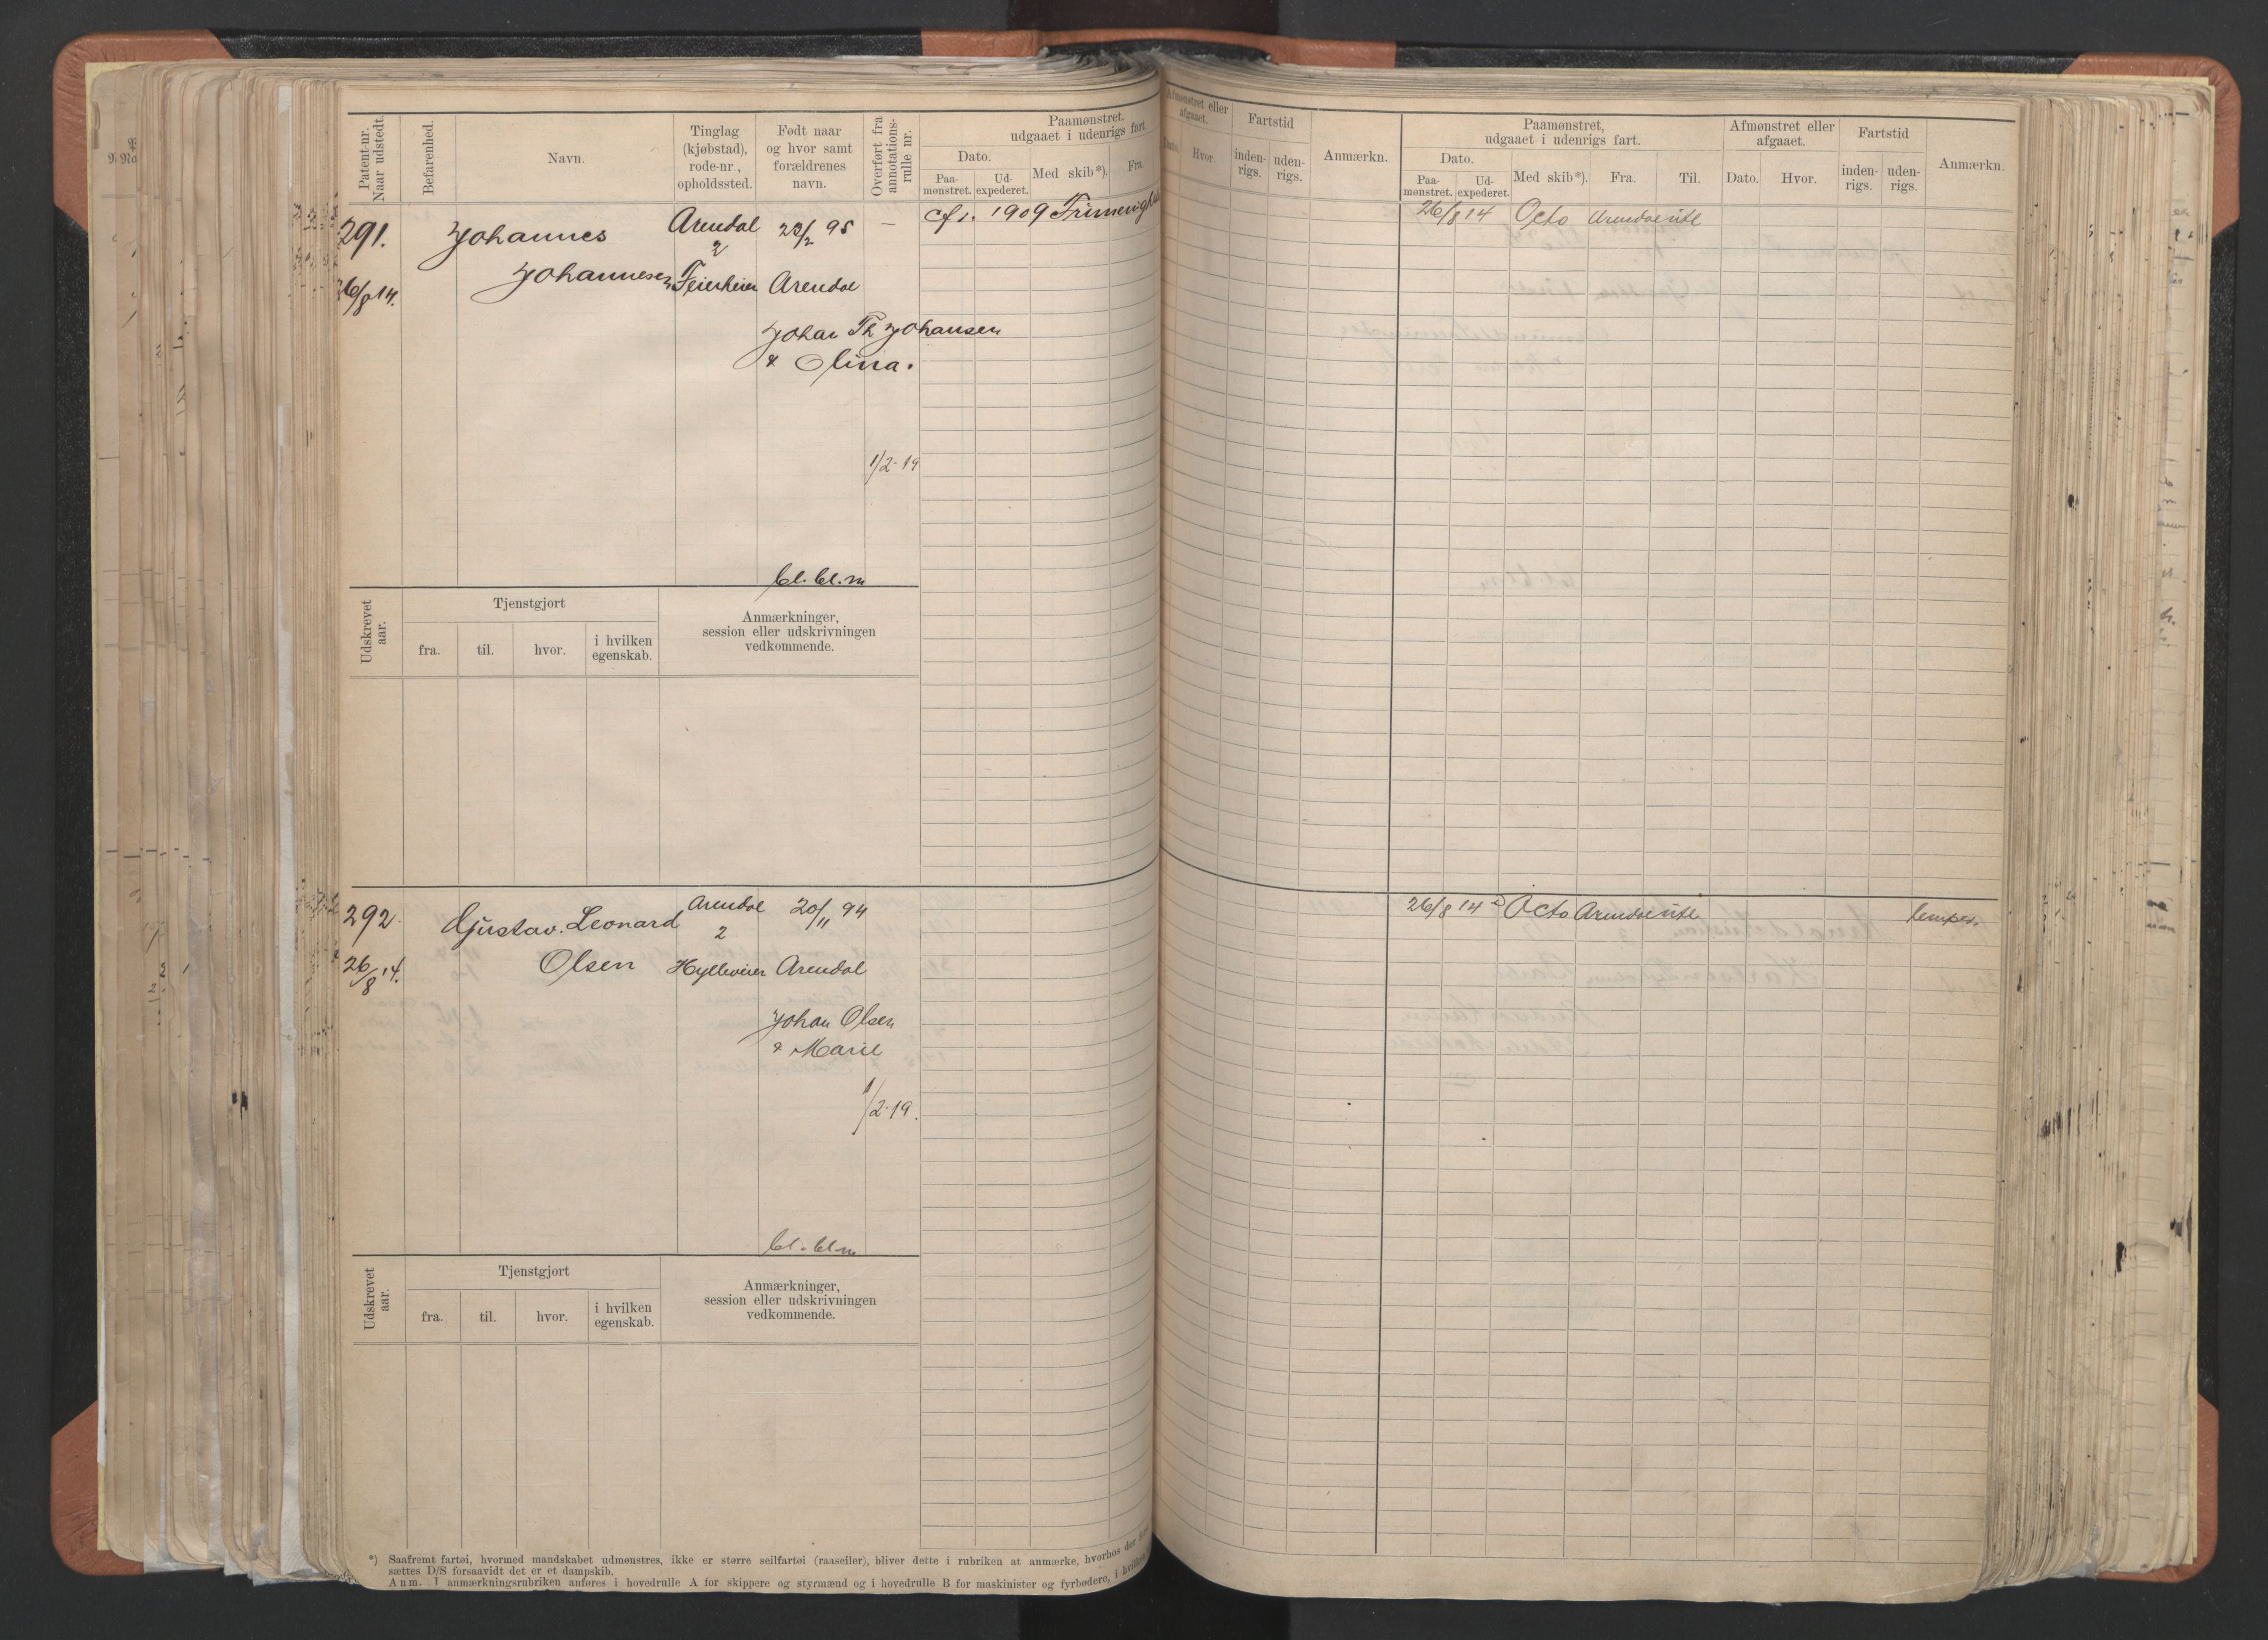 Patent-nr.
Naar udstedt.
Befarenhed.
Navn.
Tinglag
(kjøbstad),
rode-nr.,
opholdssted.
Født naar
og hvor samt
forældrenes
navn.
Overført fra
annotations-
rulle nr.
Paamønstret.
udgaaet i udenrigs fart
Dato.
Paa-
mønstret.
Ud-
expederet.
Med skib*).
Fra.
291.
26/8 14.
Johannes
Johannesen
Arendal
2
Feierheien
23/2 95
Arendal
Johan Th Johansen
& Olina.
—
1/2-19
bl. bl. m
cf 1. 1909
Udskrevet
aar.
Tjenstgjort
fra.
til.
hvor.
i hvilken
egenskab.
Anmærkninger,
session eller udskrivningen
vedkommende.
292
26/8 14.
Gustav Leonard
Olsen
Arendal
2
Hylleveien
20/11 94
Arendal
Johan Olsen
& Marie
1/2-19.
bl. bl m
Udskrevet
aar.
Tjenstgjort
fra.
til.
hvor.
i hvilken
egenskab.
Anmærkninger,
session eller udskrivningen
vedkommende.
*) Saafremt fartøi, hvormed mandskabet udmønstres, ikke er større seilfartøi (raaseiler), bliver dette i rubriken at anmærke, hvorhos der
sættes D/S forsaavidt det er et dampskib.
Anm. I anmærkningsrubriken anføres i hovedrulle A for skippere og styrmænd og i hovedrulle B for maskinister og fyrbødere, i hvilken
Afmønstret eller
afgaaet.
Dato.
Hvor.
Fartstid
inden-
rigs.
uden-
rigs.
Anmærkn.
Paamønstret,
udgaaet i udenrigs fart.
Dato.
Paa-
mønstret.
Ud-
expederet.
Med skib*).
Fra.
Til.
Afmønstret eller
afgaaet.
Dato.
Hvor.
Fartstid
inden-
rigs.
uden-
rigs.
Anmærkn.
26/8 14 Octo Arendal utl
26/8 14 Octo Arendal utl